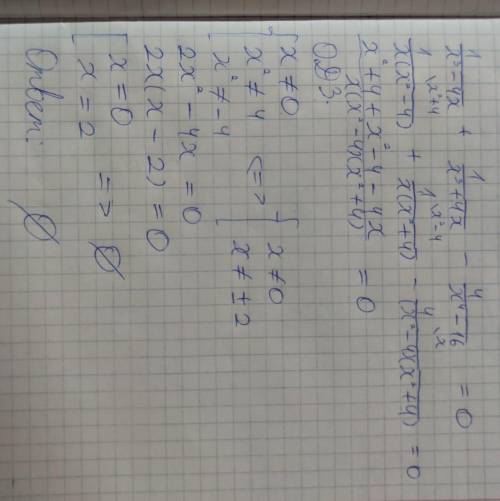 1/(x³-4x) + 1/(x³+4x) - 4/(x⁴-16) = 0
\x²+4 \x²-4 \x
1/(x(x²-4)) + 1/(x(x²+4)) - 4/((x²-4)(x²+4)) = 0
(x²+4+x²-4-4x)/(x(x²-4)(x²+4)) = 0
О.Д.З.
{ x ≠ 0
x² ≠ 4 <=> { x ≠ 0
x² ≠ -4 x ≠ ±2
2x² - 4x = 0
2x(x - 2) = 0
[ x = 0
x = 2 => ∅
Ответ: ∅